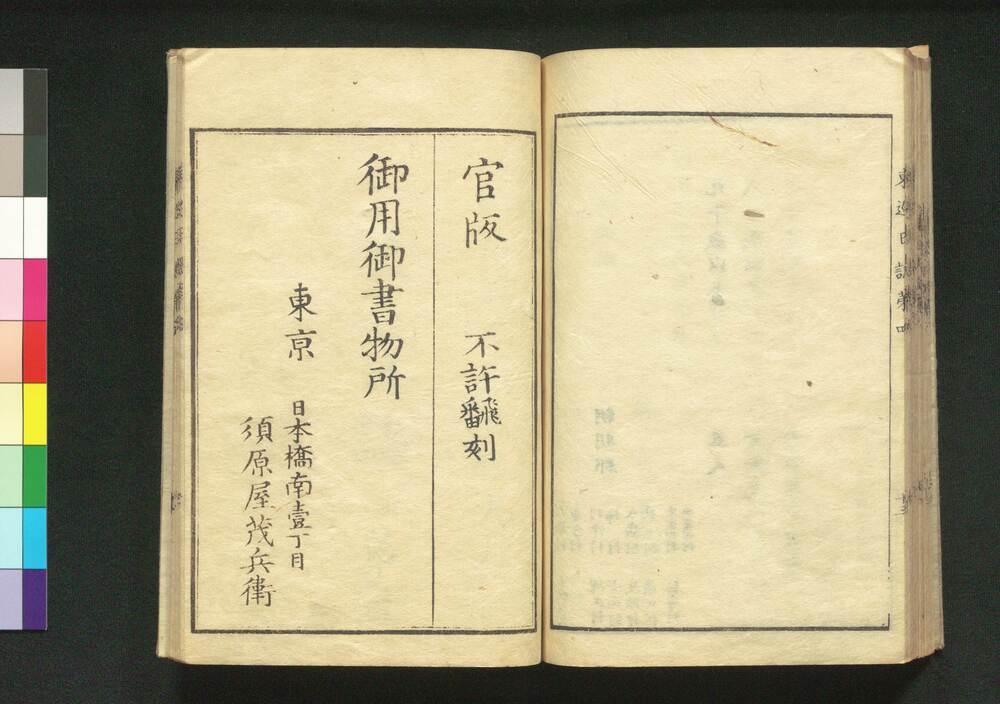 官版
不許飜刻
御用御書物所
東京
日本橋南壹丁目
須原屋茂兵衛